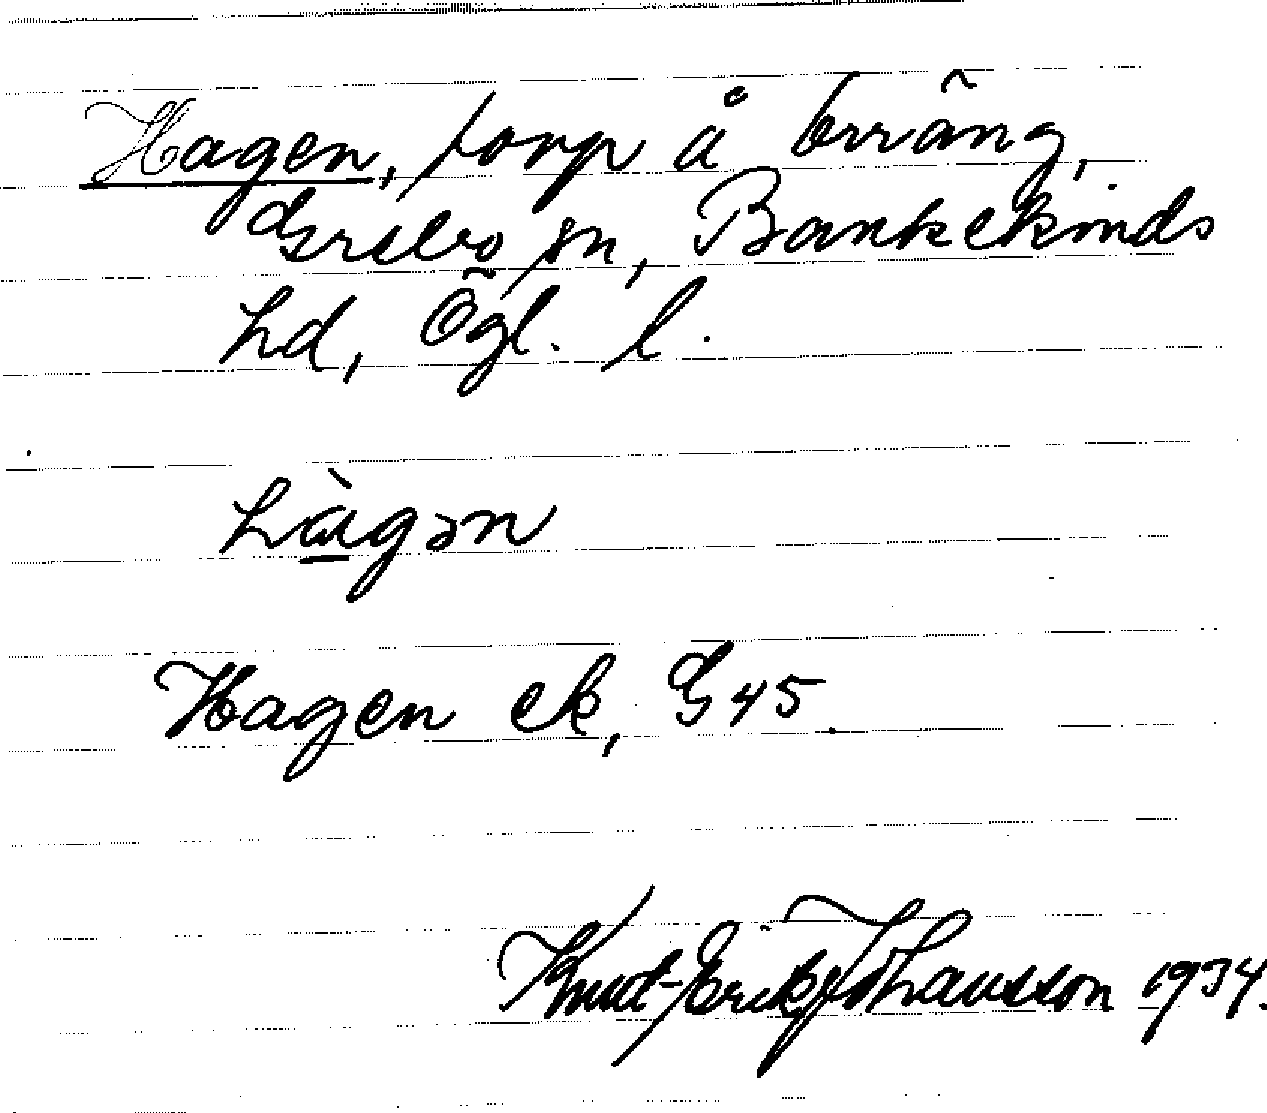 Hagen, torp å Orräng,
Grebo sn, Bankekinds
hd, Ögl. l.
hàgən
Hagen ek, G 45.
Knut-Erik Johansson 1934.